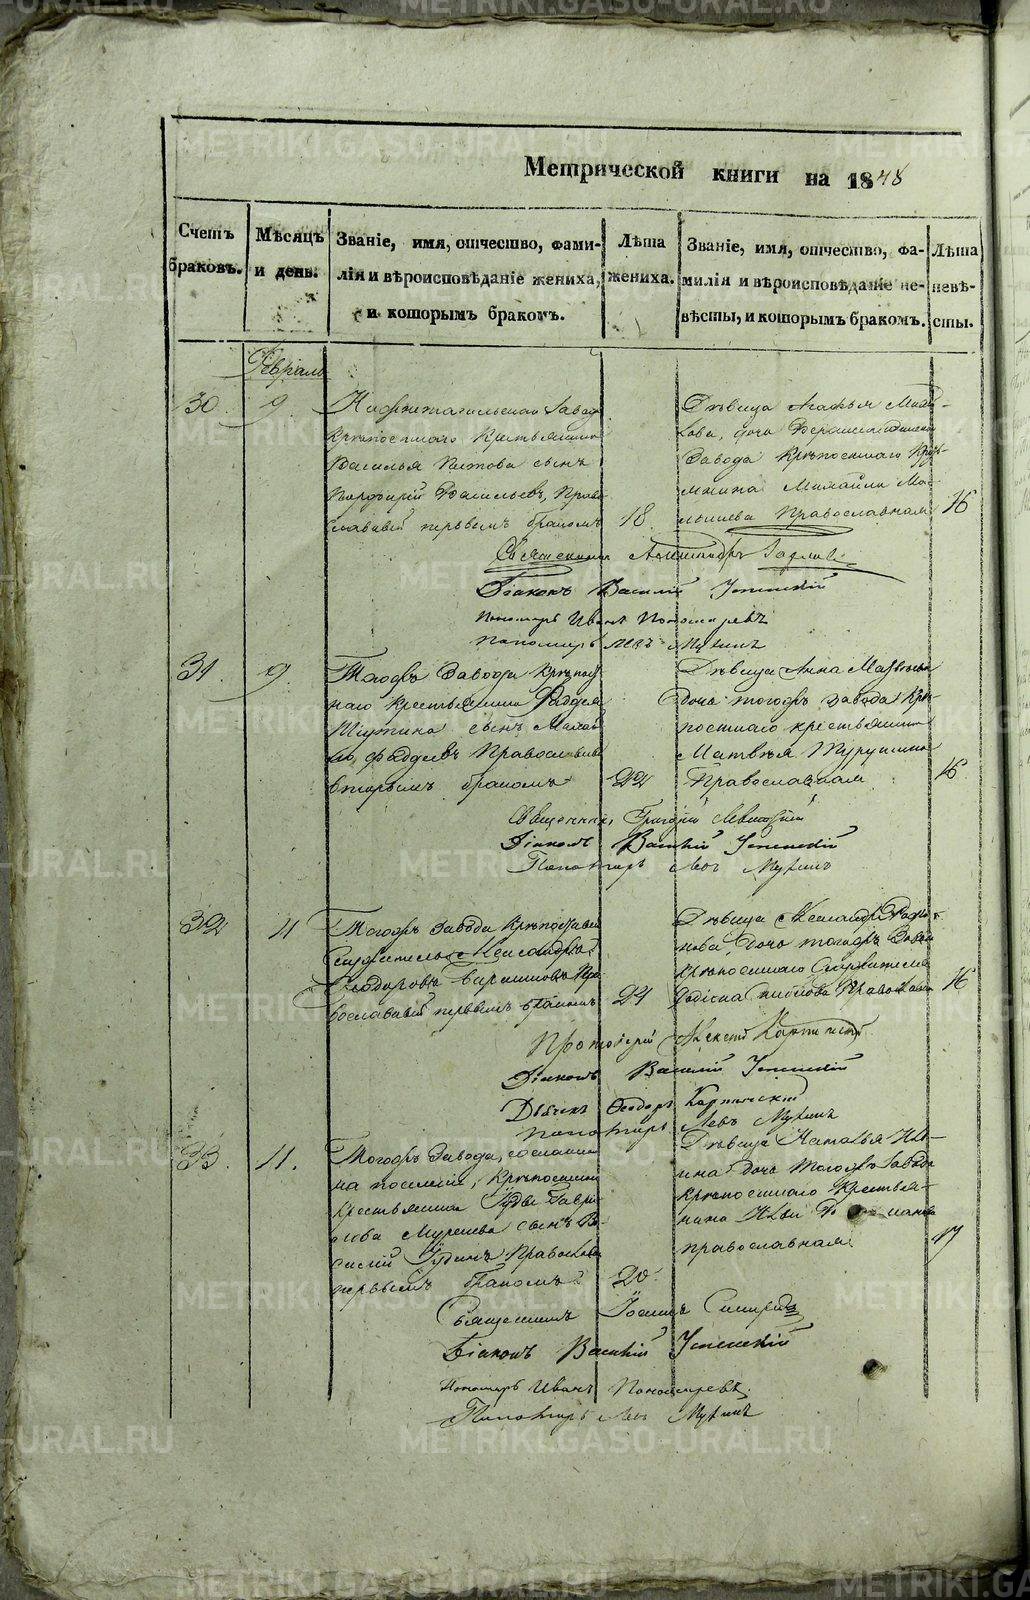 Метрической книги на 1848
Счетъ браковъ.
Мѣсяцъ и день.
Званіе, имя, отчество, фами-
лія и вѣроисповѣданіе жениха,
и которымъ бракомъ.
Лѣта
жениха.
Званіе, имя, отчество, фа-
милія и вѣроисповѣданіе не-
вѣсты, и которымъ бракомъ.
Лѣта
невѣ-
сты.
Февраль
30. 9.
Нижнетагильскаго Завода
крѣпостнаго крестьянина
Василья сынъ
Васильевъ, Право
славный первымъ бракомъ 18
Дѣвица Агафья Михай-
лова, дочь
Завода Крѣпостнаго Кресть-
янина Михайла
Православная 16
Священникъ Александръ
Діаконъ Василій Успенскій
Пономарь Иванъ Пономаревъ
Пономарь Левъ Мухинъ
31. 9.
Тогожъ Завода крѣпост
наго крестьянина Фаддея
сынъ Михаи
Фаддеевъ Православный
вторымъ бракомъ 22
Дѣвица Анна Матвѣева
дочь тогожъ завода крѣ-
постнаго крестьянина
Матвѣя
Православная 16
Священникъ Григорій Левитскій
Діаконъ Василій Успенскій
Пономарь Левъ Мухинъ
32 11
Тогожъ Завода Крѣпостный
Служитель Александръ
Ѳеодоровъ Пра
вославный первымъ бракомъ 24
Дѣвица Александра Родіо-
нова дочь тогожъ Завода
крѣпостнаго Служителя
Родіона Православная 16
Протоіерей Алексѣй Карпинскій
Діаконъ Василій Успенскій
Дьячекъ Ѳеодоръ Карпинскій
Пономарь Левъ Мухинъ
33. 11.
Тогожъ Завода, сосланна
на поселеніе, Крѣпостнаго
крестьянина Іуды Гаври
лова сынъ Ва
силій Іудинъ Православный
первымъ бракомъ 20
Дѣвица Наталья Иль-
ина дочь тогожъ Завода
крѣпостнаго крестья-
нина Ильи
православная 17
Священникъ Іоаннъ
Діаконъ Василій Успенскій
Пономарь Иванъ Пономаревъ
Пономарь Левъ Мухинъ
METRIKI.GASO-URAL.RU